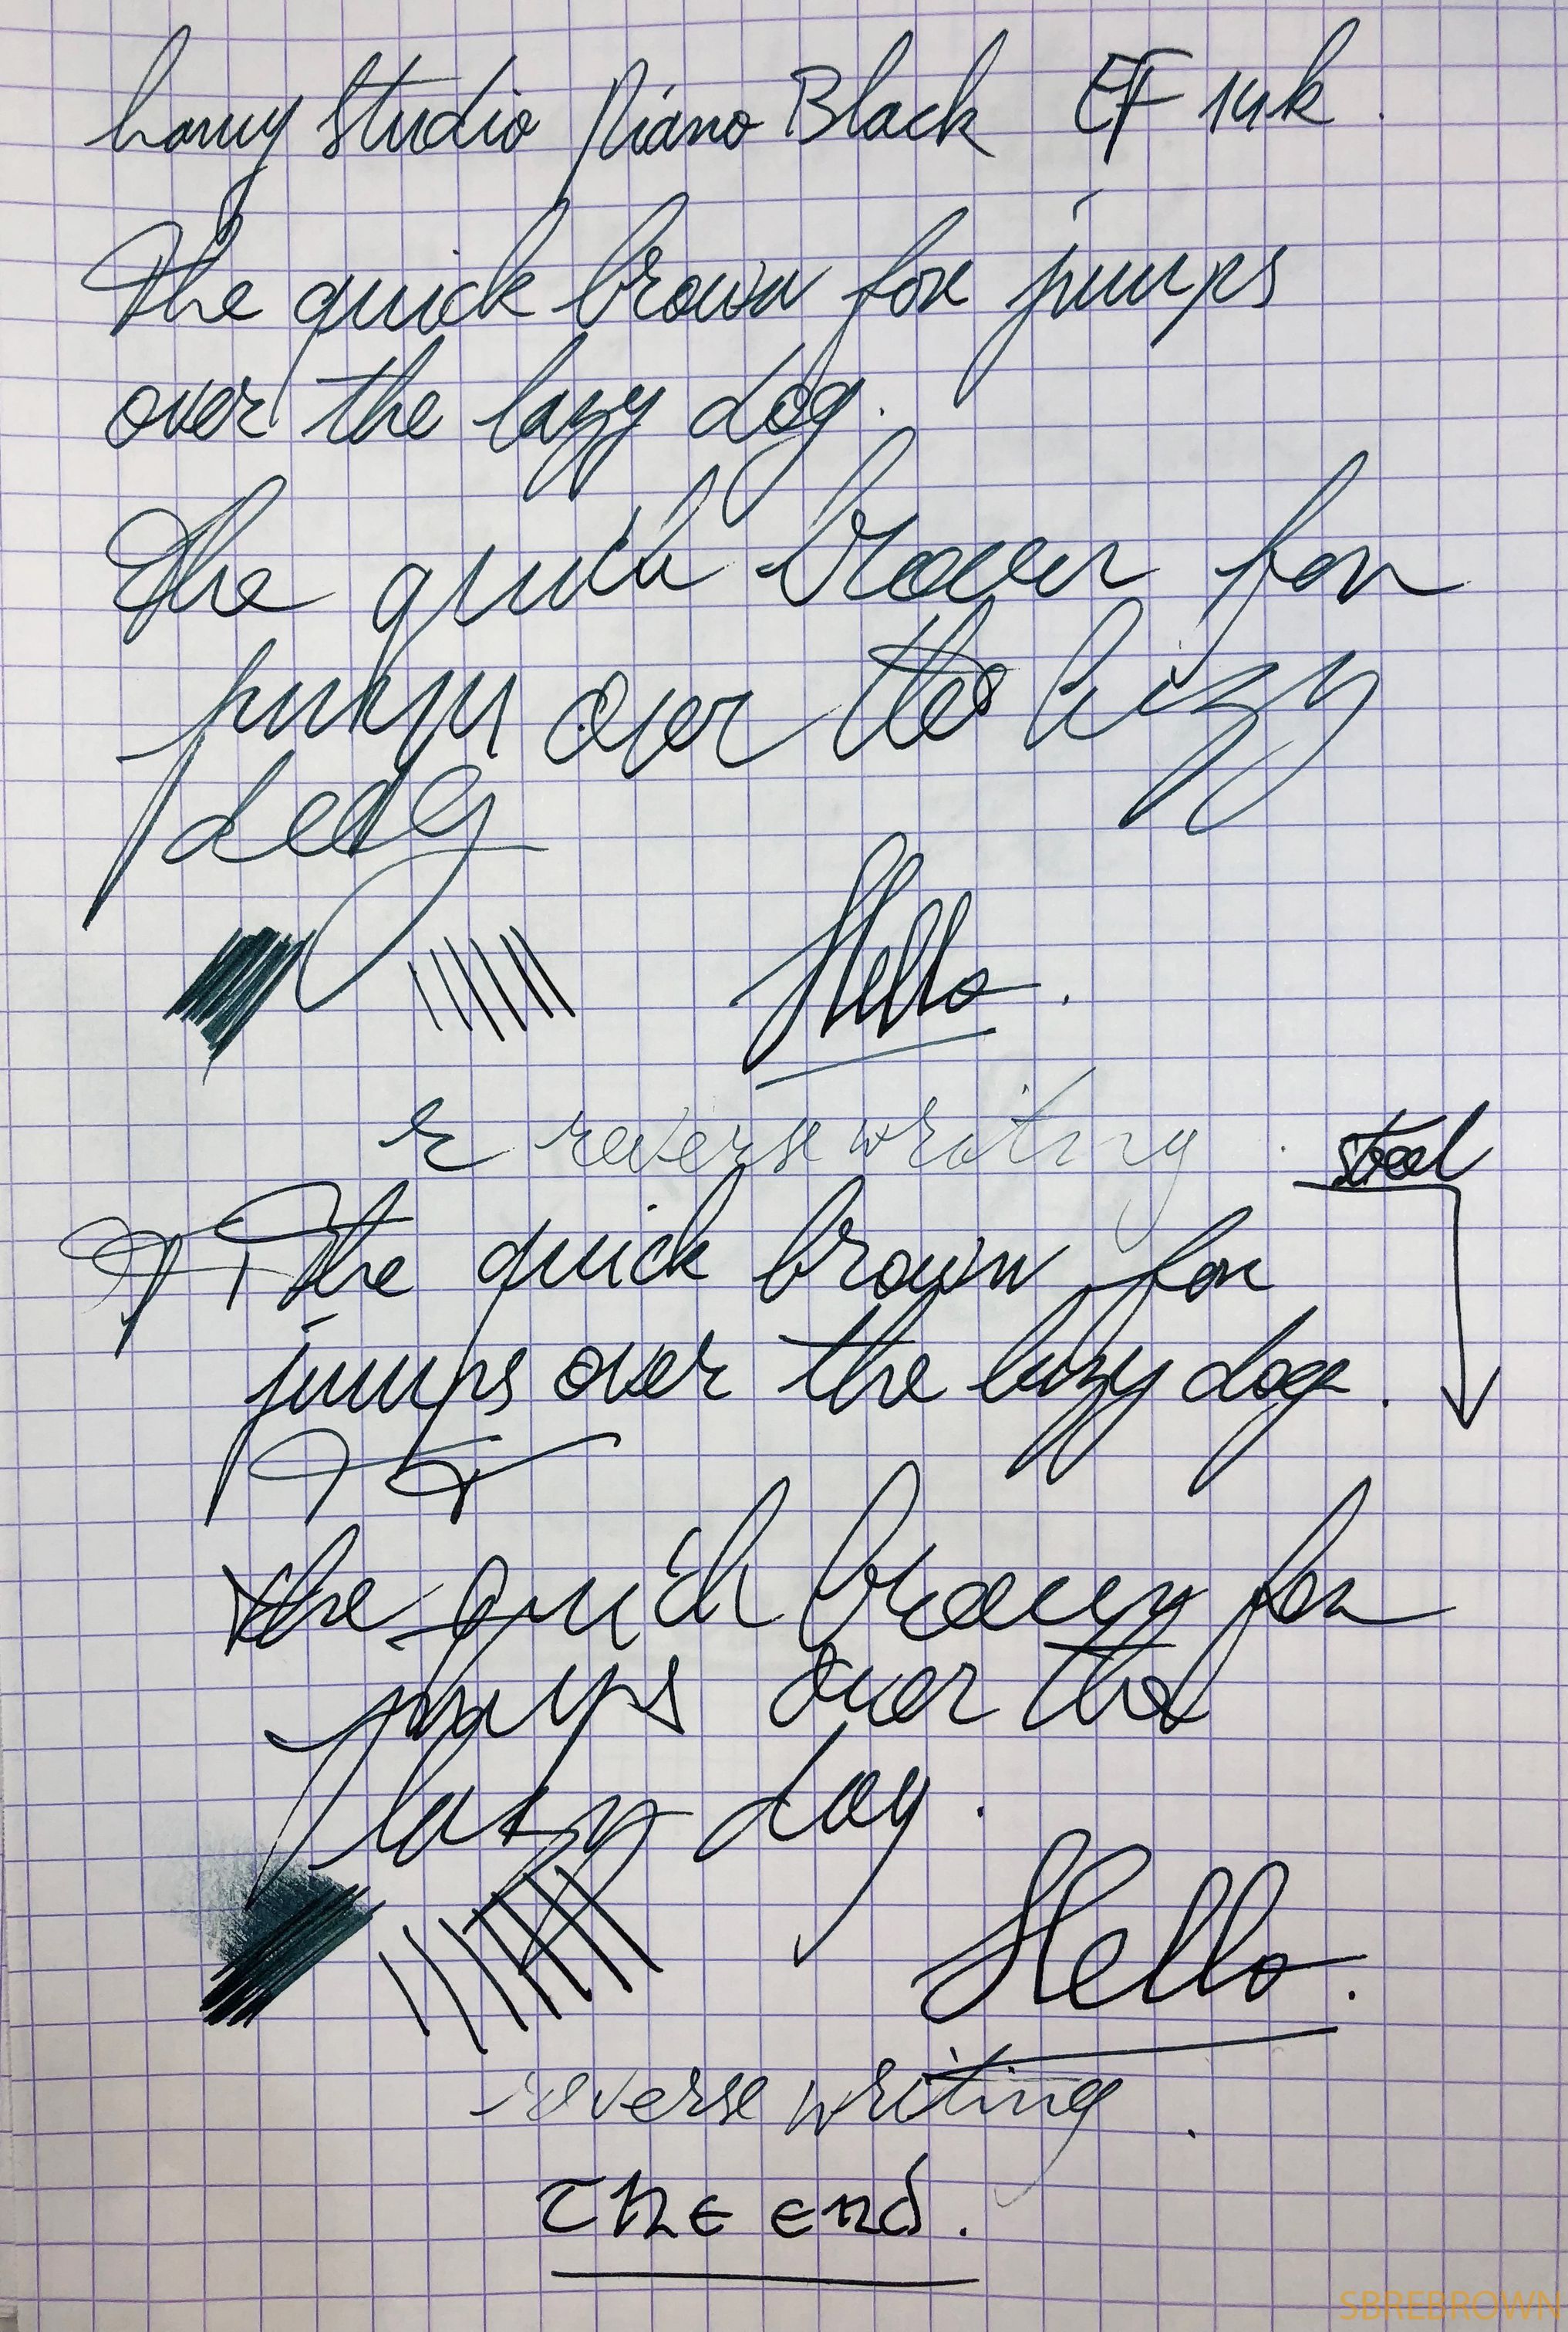 Lamy Studio Piano Black EF 14k.
The quick brown fox jumps
over the lazy dog.
The quick brown fox
jumps over the lazy
dog
Hello.
r reverse writing.
steel
The quick brown fox
jumps over the lazy dog.
the quick brown fox
jumps over the
lazy dog.
Hello.
reverse writing.
The end.
SBREBROWN